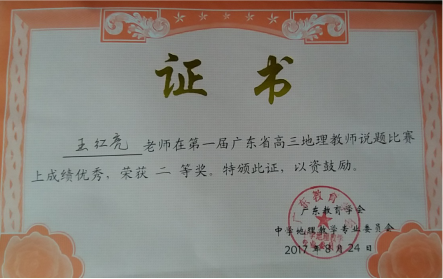 证 书
王红亮 老师在第一届广东省高三地理教师说题比赛
上成绩优秀，荣获 二 等奖。特颁此证，以资鼓励。
广东教育学会
中学地理教学专业委员会
2017年8月24日